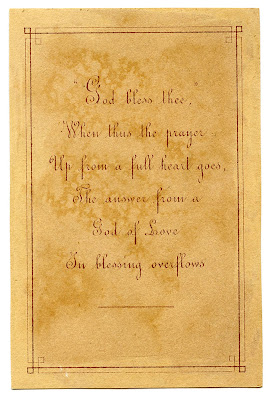 "God bless thee,"
When thus the prayer
Up from a full heart goes,
The answer from a
God of Love
In blessing overflows